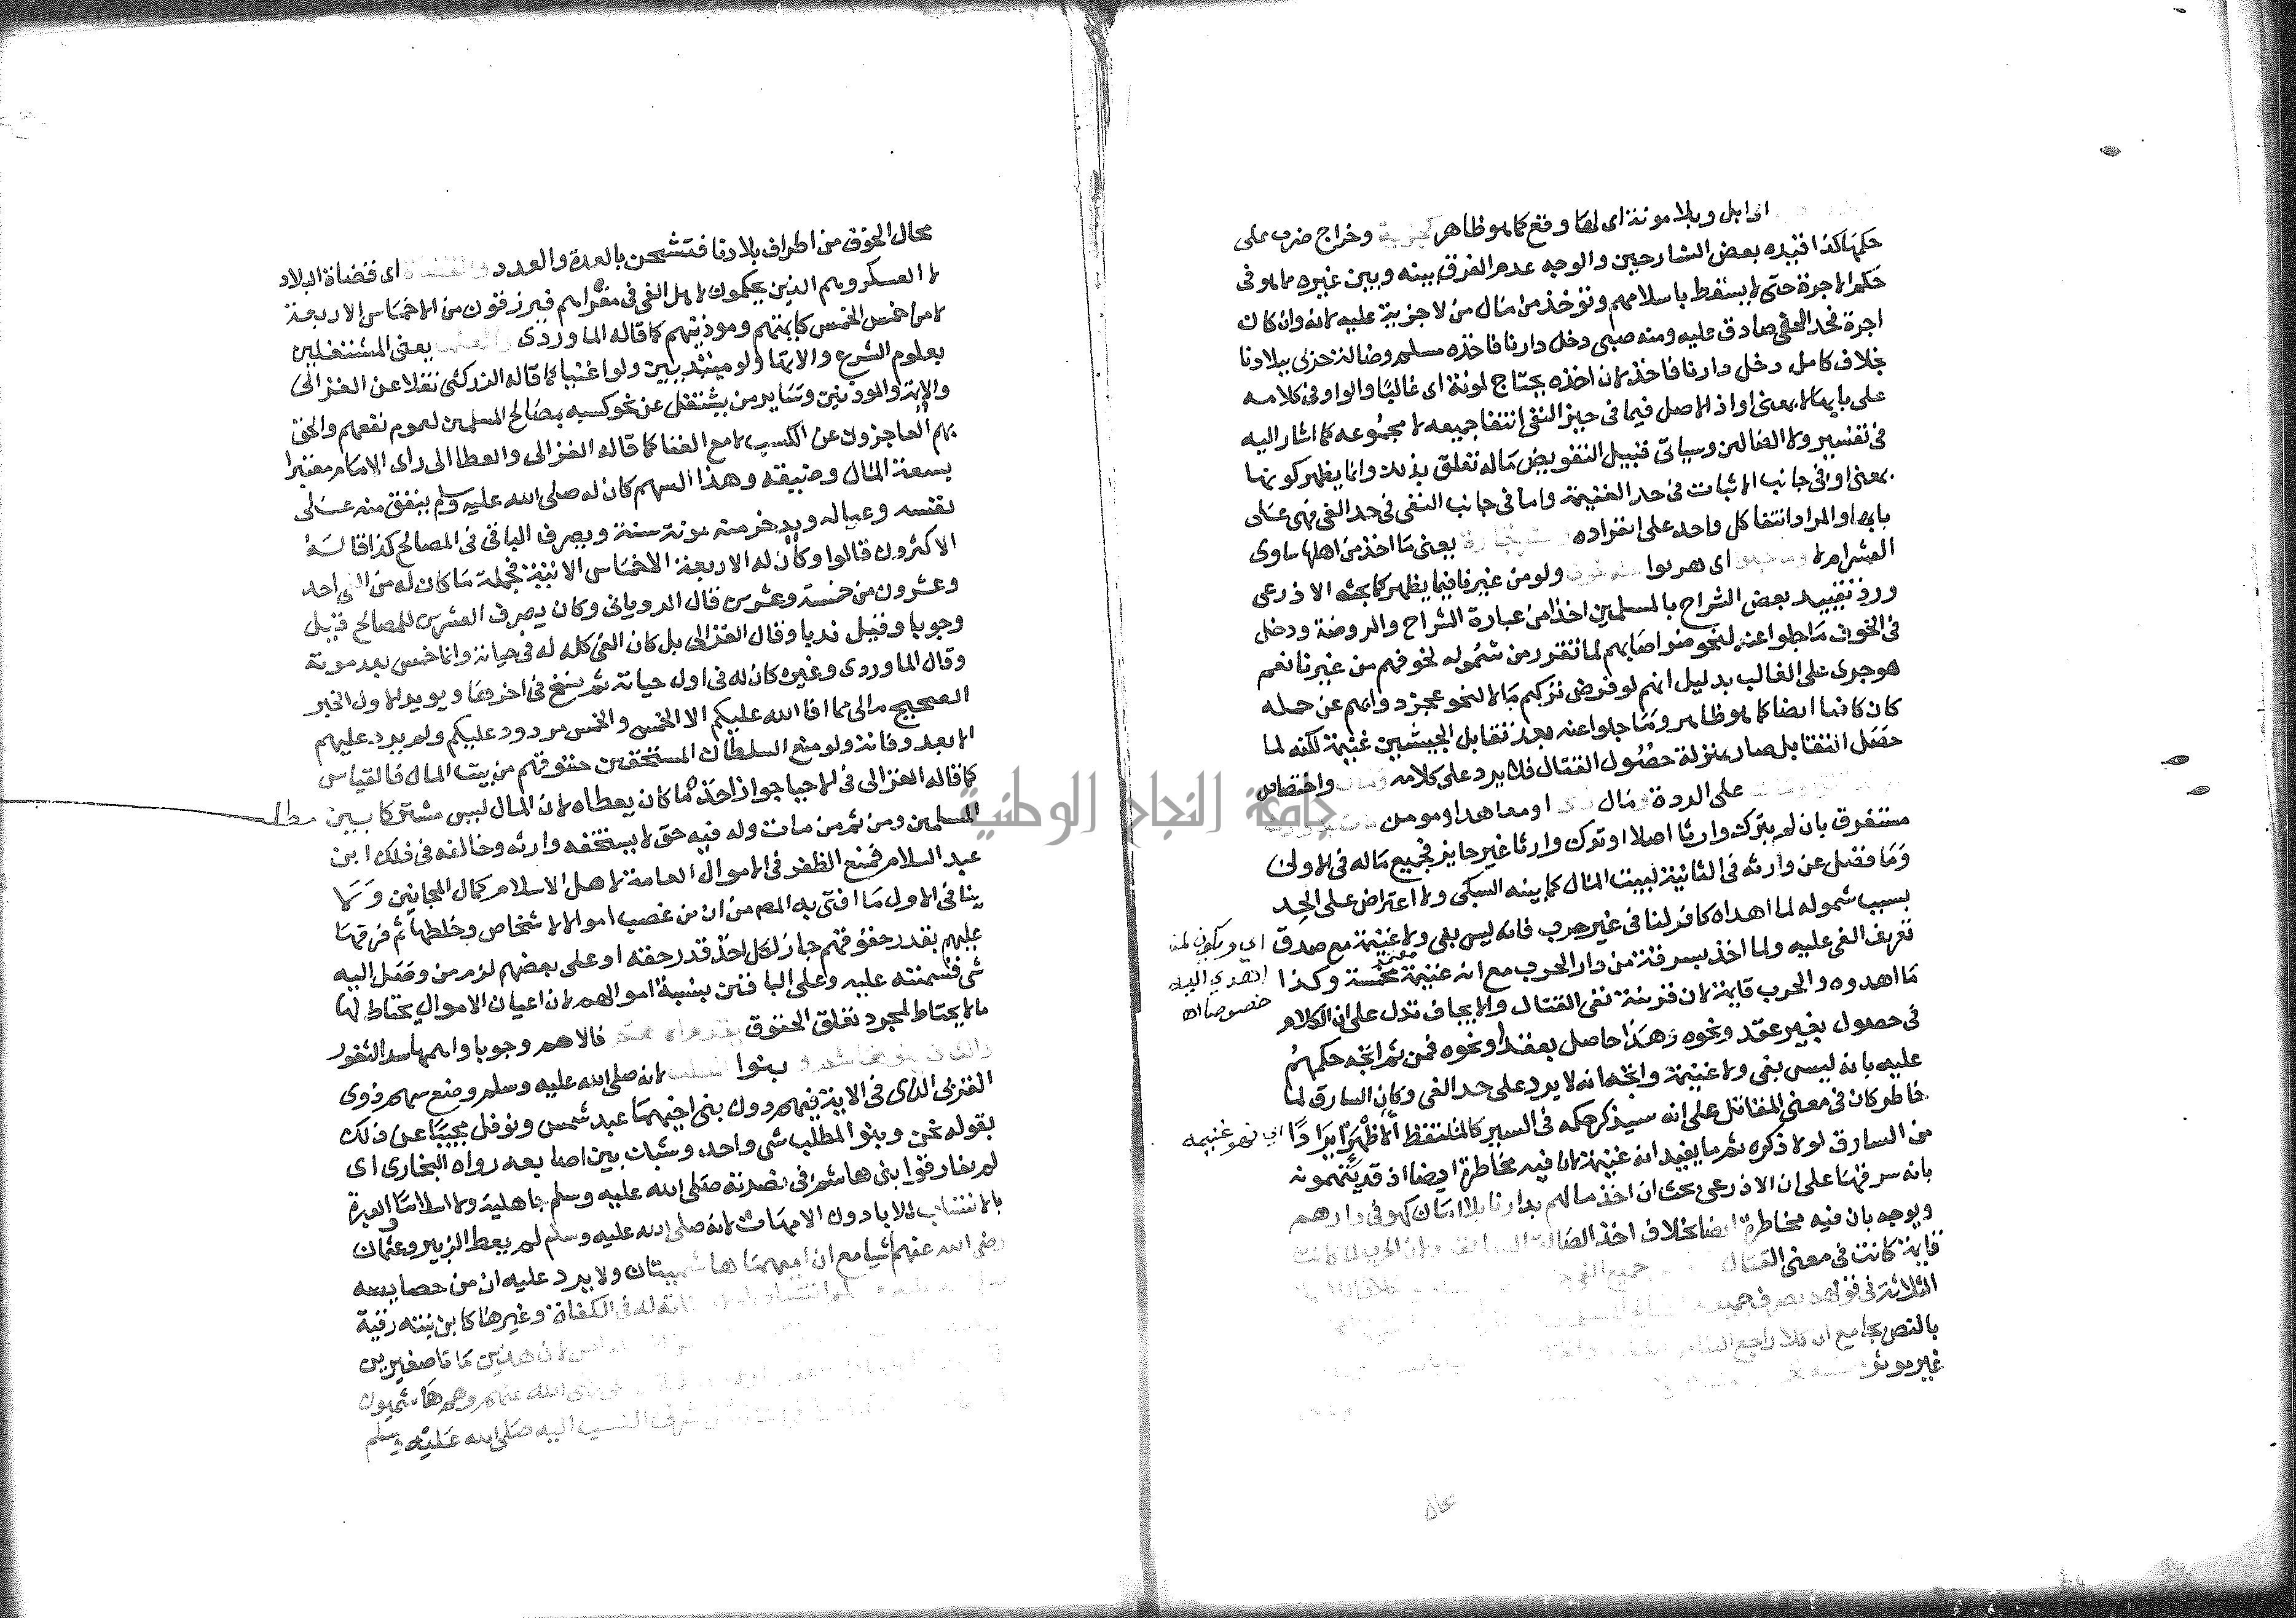 او ابل وبلا مونة اى لها وقع كما هو ظاهر كجزية وخراج ضرب على
حكمها كذا قيده بعض الشارحين والوجه عدم الفرق بينه وبين غيره مما هو فى
حكم الاجرة حتى لا يسقط باسلامهم وتوخذ من مال من لا جزية عليه لانه وان كان
اجرة فحد الفى صادق عليه ومنه صبى دخل دارنا فاخذه مسلم وضالة حربى ببلادنا
بخلاف كامل دخل دارنا فاخذ لان اخذه يحتاج لمونة اى غالبا والواو فى كلامه
على بابها لا بمعنى او اذ الاصل فيما فى حيز النفى انتفا جميعه لا مجموعه كما اشار اليه
فى تفسير ولا الضالين وسياتى قبيل التفويض ماله تعلق بذلك وانما يظهر كونها
بمعنى او فى جانب الاثبات فى حد الغنيمة واما فى جانب النفى فى حد الفى فهى على
بابها والمراد انتفا كل واحد على انفراده وعشر تجارة يعنى ما اخذ من اهلها ساوى
العشر ام لا وما جلوا اى هربوا عنه خوفا ولو من غيرنا فيما يظهر كما بحثه الاذرعى
ورد تقييد بعض الشراح بالمسلمين اخذا من عبارة الشراح والروضة ودخل
فى الخوف ما جلوا عنه لنحو ضر اصابهم لما تقرر من شموله لخوفهم من غيرنا نعم
هو جرى على الغالب بدليل انهم لو فرض تركهم مالا لنحو عجز دوابهم عن حمله
كان فيا ايضا كما هو ظاهر وما جلوا عنه بعد تقابل الجيشين غنيمة لكنه لما
حصل التقابل صار بمنزلة حصول القتال فلا يرد على كلامه ومال واختصاص
على الردة ومال ذمى او معاهد او مومن مات بلا وارث
مستغرق بان لم يترك وارثا اصلا او ترك وارثا غير حايز فجميع ماله فى الاولى
وما فضل عن وارثه فى الثانية لبيت المال كما بينه السبكى ولا اعتراض على الحد
بسبب شموله لما اهداه كافر لنا فى غير حرب فانه ليس بفى ولا غنيمة مع صدق
تعريف الفى عليه ولما اخذ بسرقة من دار الحرب مع انه غنيمة مخمسة وكذا
ما اهدوه والحرب قايمة لان قرينة نفى القتال والايجاف تدل على ان الكلام
فى حصول بغير عقد ونحوه وهذا حاصل بعقد او نحوه فمن ثم اتجه حكمهم
عليه بانه ليس بفى ولا غنيمة واتجه انه لا يرد على حد الفى وكان السارق لما
خاطر كان فى معنى المقاتل على انه سيذكر حكمه فى السير كالملتقط الاظهر ايرادا
من السارق لولا ذكره ثم ما يفيد انه غنيمة لان فيه مخاطرة ايضا اذ قد يتهمونه
بانه سرقها على ان الاذرعى بحث ان اخذ مالهم بدارنا بلا امان كهو فى دارهم
ويوجه بان فيه مخاطرة ايضا بخلاف اخذ الضالة السابقة ولان الحرب لما كانت
قايمة كانت فى معنى القتال جميع الفى
الثلاثة فى قولهم يصرف جميعه
بالنص بجامع ان كلا راجع الينا
غير موثر
اى ويكون لمن
اهدى اليه
خصوصا اه
اى فهو غنيمه
محال
محال الخوف من اطراف بلادنا فتشحن بالعدة والعدد والقضاة اى قضاة البلاد
لا العسكر وهم الذين يحكمون لاهل الفى فى مغزاهم فيرزقون من الاخماس الاربعة
لا من خمس الخمس كايمتهم وموذنيهم كما قاله الماوردى والعلما يعنى المشتغلين
بعلوم الشرع والاتها ولو مبتديين ولو اغنيا كما قاله الزركشى نقلا عن الغزالى
والايمة والموذنين وساير من يشتغل عن نحو كسبه بمصالح المسلمين لعموم نفعهم والحق
بهم العاجزون عن الكسب لا مع الغنا كما قاله الغزالى والعطا الى راى الامام معتبرا
بسعة المال وضيقه وهذا السهم كان له صلى الله عليه وسلم ينفق منه على
نفسه وعياله ويدخر منه مونة سنة ويصرف الباقى فى المصالح كذا قاله
الاكثرون قالوا وكان له الاربعة الاخماس الاتية فجملة ما كان له من الفى احد
وعشرون من خمسة وعشرين قال الرويانى وكان يصرف العشرين للمصالح قيل
وجوبا وقيل ندبا وقال الغزالى بل كان الفى كله له فى حياته وانما خمس بعد موته
وقال الماوردى وغيره كان له فى اول حياته ثم نسخ فى اخرها ويويد الاول الخبر
الصحيح مالى مما افا الله عليكم الا الخمس والخمس مردود عليكم ولم يرد عليهم
الا بعد وفاته ولو منع السلطان المستحقين حقوقهم من بيت المال فالقياس
كما قاله الغزالى فى الاحيا جواز اخذه ما كان يعطاه لان المال ليس مشتركا بين
المسلمين ومن ثم من مات وله فيه حق لا يستحقه وارثه وخالفه فى ذلك ابن
عبد السلام فمنع الظفر فى الاموال العامة لاهل الاسلام كمال المجانين ولا
ينافى الاول ما افتى به المص من ان من غصب اموالا لاشخاص وخلطها ثم فرقها
عليهم بقدر حقوقهم جاز لكل اخذ قدر حقه او على بعضهم لزم من وصل اليه
شى قسمته عليه وعلى الباقين بنسبة اموالهم لان اعيان الاموال يحتاط لها
ما لا يحتاط لمجرد تعلق الحقوق يقدم الاهم فالاهم وجوبا واهمها سد الثغور
والثانى بنو هاشم و بنوا المطلب لانه صلى الله عليه وسلم وضع سهم ذوى
القربى الذى فى الاية فيهم دون بنى اخيهما عبد شمس ونوفل مجيبا عن ذلك
بقوله نحن وبنو المطلب شى واحد وشبك بين اصابعه رواه البخارى اى
لم يفارقوا بنى هاشم فى نصرته صلى الله عليه وسلم جاهلية ولا اسلاما والعبرة
بالانتساب للابا دون الامهات لانه صلى الله عليه وسلم لم يعط الزبير وعثمان
رضى الله عنهم شيا مع ان اميهما هاشميتان ولا يرد عليه ان من خصايصه
فى الكفاة وغيرها كابن بنته رقية
لان هذين ماتا صغيرين
رضى الله عنهم وهم هاشميون
شرف النسب اليه صلى الله عليه وسلم
مطلب
جامعة النجاح الوطنية